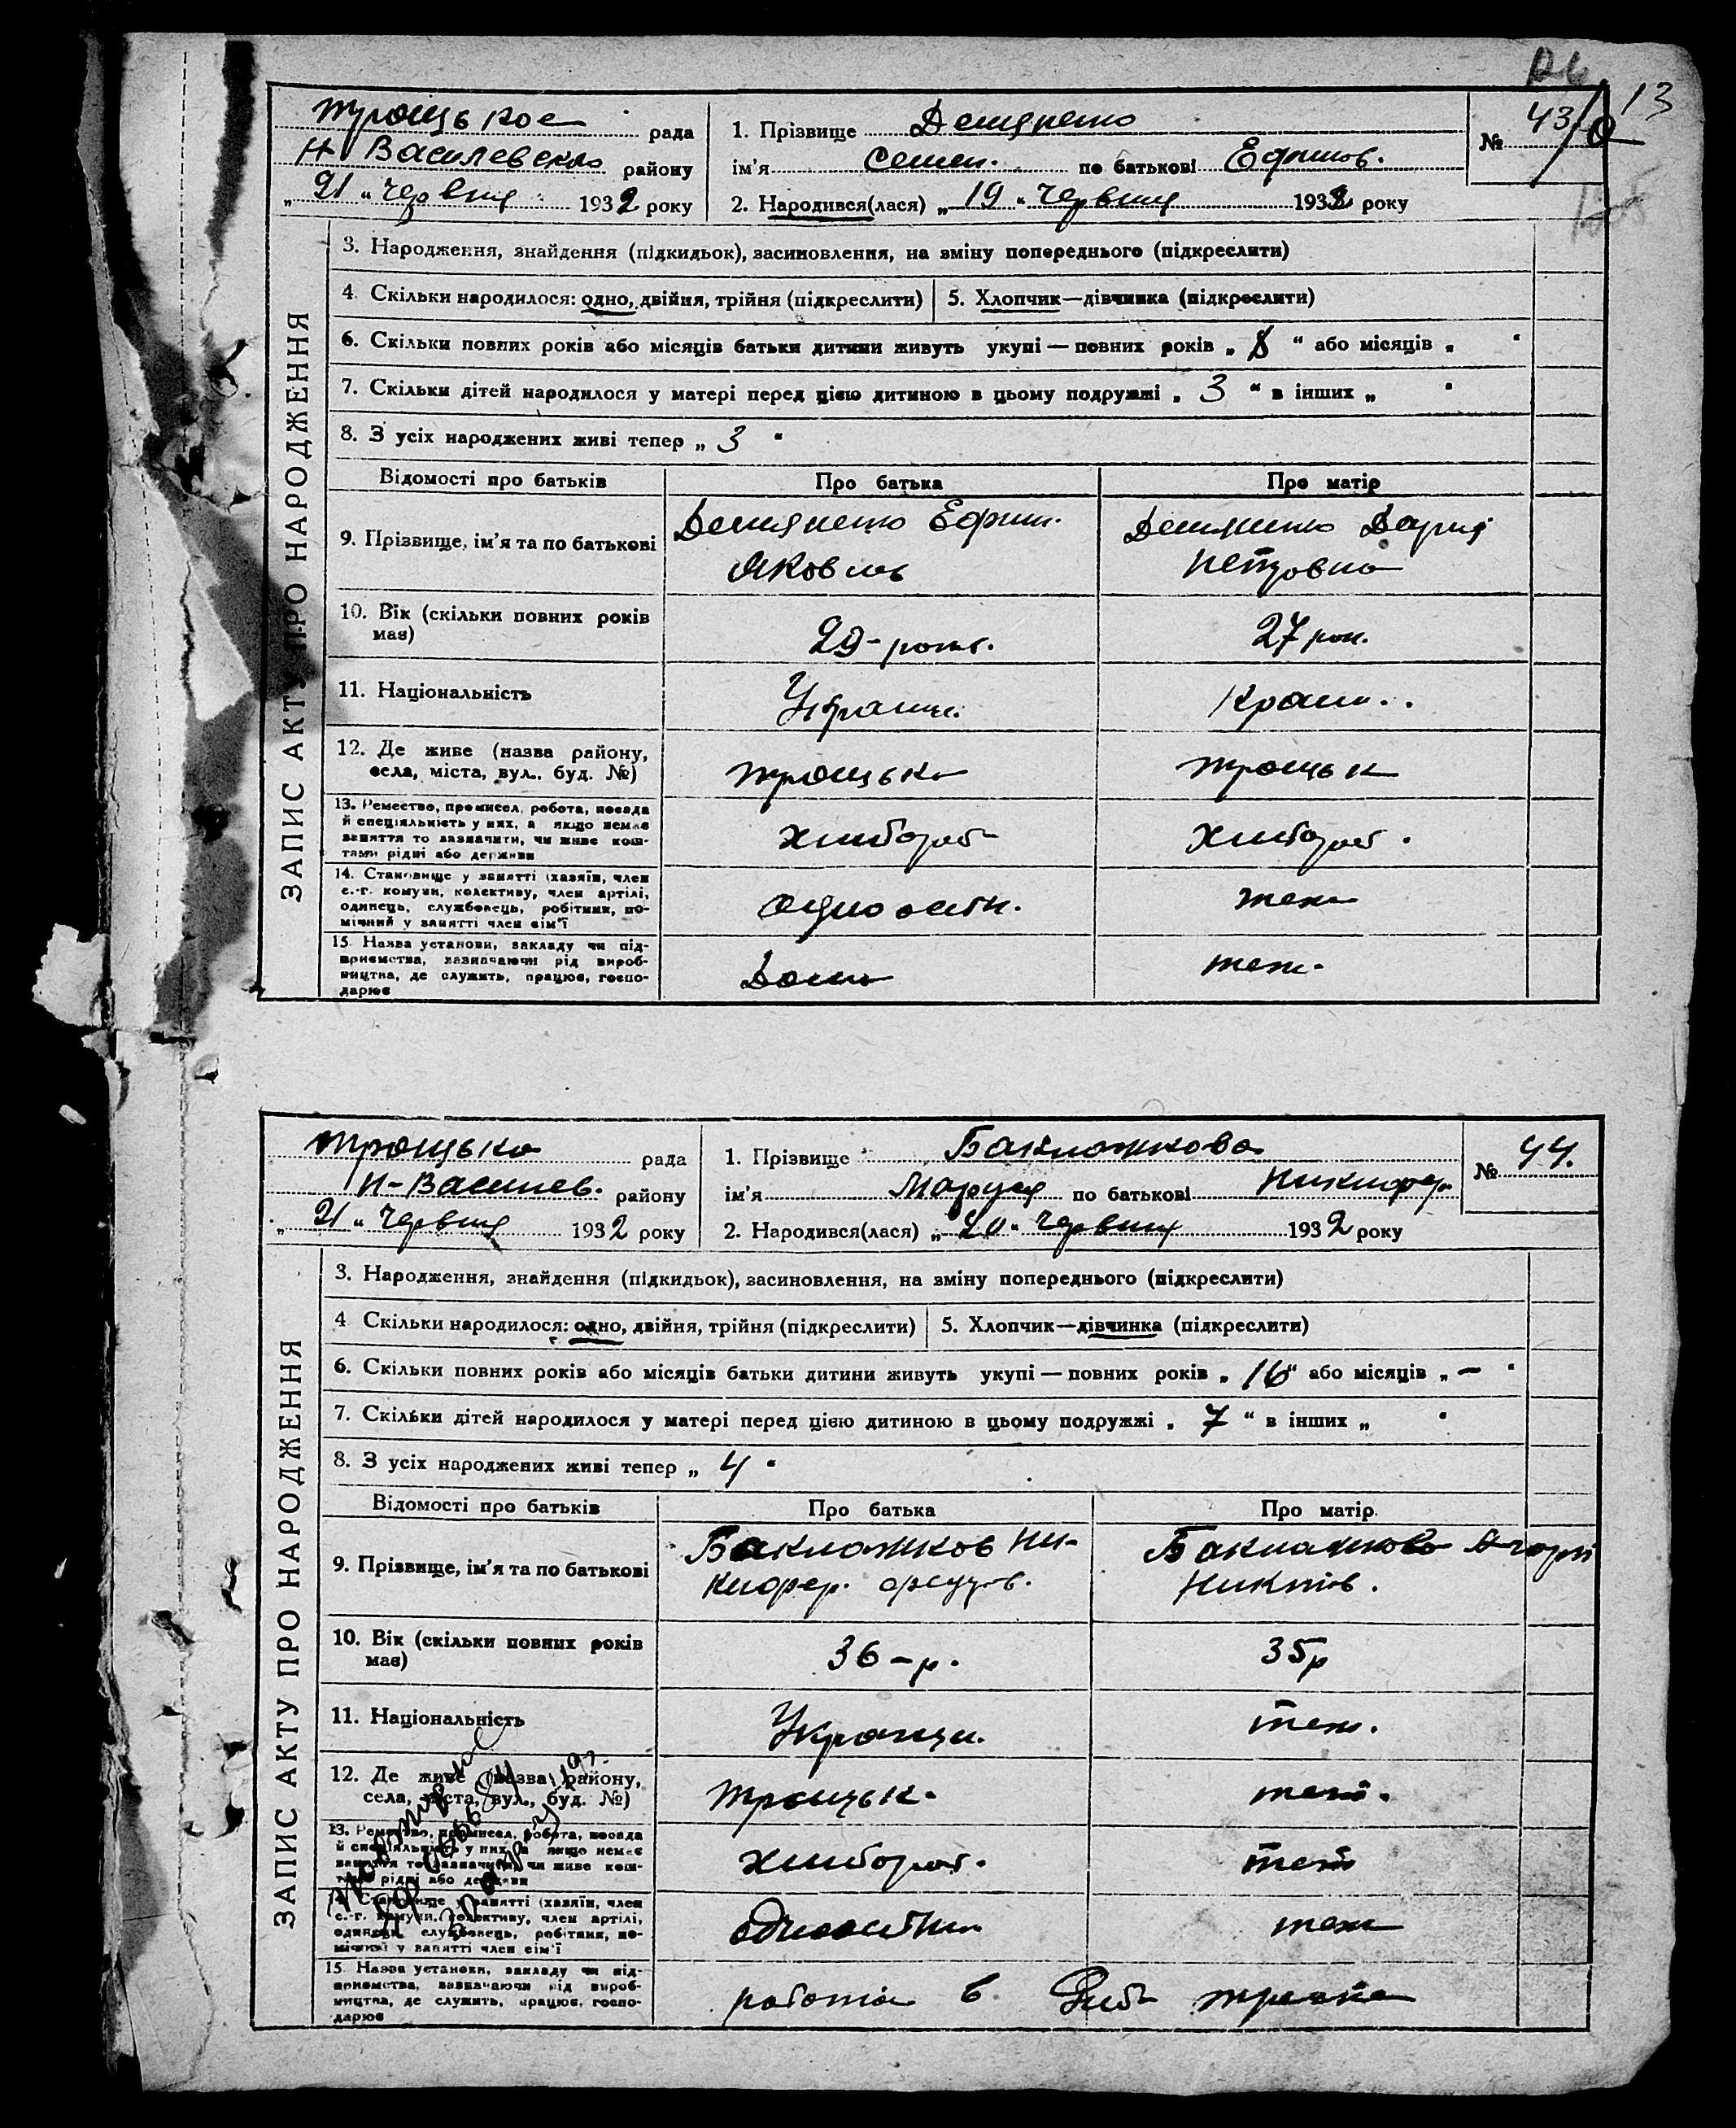 13
Троцькое рада
Н Василевсько району
„ 21 " червня 1932 року
1. Прізвище Демяненко
ім'я Семен. по батькові Ефимов.
2. Народився(лася) „ 19 " червня 1932 року
№ 43
ЗАПИС АКТУ ПРО НАРОДЖЕННЯ
3. Народження, знайдення (підкидьок), засиновлення, на зміну попереднього (підкреслити)
4. Скільки народилося: одно, двійня, трійня (підкреслити) 5. Хлопчик—дівчинка (підкреслити)
6. Скільки повних років або місяців батьки дитини живуть укупі — повних років „ 8 " або місяців „ "
7. Скільки дітей народилося у матері перед цією дитиною в цьому подружжі „ 3 " в інших „ "
8. З усіх народжених живі тепер „ 3 "
Відомості про батьків Про батька Про матір
9. Прізвище, ім'я та по батькові
Демяненко Ефим.
Яковлев
Демяненко Дария
Петровна
10. Вік (скільки повних років має)
29 - років. 27 рок.
11. Національність Україн. Краин..
12. Де живе (назва району,
села, міста, вул., буд. №)
Троцько Троцьк
13. Ремество, промисел, робота, посада
й спеціяльність у них, а якщо немає
заняття то зазначити, чи живе кош-
тами рідні або держави
Хлибороб Хлибороб.
14. Становище у занятті (хазяїн, член
с.-г. комуни, колективу, член артілі,
одинець, службовець, робітник, по-
мічний у занятті член сім'ї
Одноосібн. теж
15. Назва установи, закладу чи під-
приємства, зазначаючи рід вироб-
ництва, де служить, працює, госпо-
дарює
Дома теж.
Троцько рада
Н-Василев. району
„ 21 " червня 1932 року
1. Прізвище Баклажкова
ім'я Маруся по батькові Никифор.
2. Народився(лася) „ 20 " червня 1932 року
№ 44.
ЗАПИС АКТУ ПРО НАРОДЖЕННЯ
3. Народження, знайдення (підкидьок), засиновлення, на зміну попереднього (підкреслити)
4. Скільки народилося: одно, двійня, трійня (підкреслити) 5. Хлопчик—дівчинка (підкреслити)
6. Скільки повних років або місяців батьки дитини живуть укупі — повних років „ 16 " або місяців „ — "
7. Скільки дітей народилося у матері перед цією дитиною в цьому подружжі „ 7 " в інших „ "
8. З усіх народжених живі тепер „ 4 "
Відомості про батьків Про батька Про матір
9. Прізвище, ім'я та по батькові
Баклажков Ни-
кифор.
Баклажкова
Никитов.
10. Вік (скільки повних років має)
36 - р. 35 р
11. Національність Украинц. теж.
12. Де живе (назва району,
села, міста, вул., буд. №)
Троцьк. теж.
13. Ремество, промисел, робота, посада
й спеціяльність у них, а якщо немає
заняття то зазначити, чи живе кош-
тами рідні або держави
Хлибороб. теж
14. Становище у занятті (хазяїн, член
с.-г. комуни, колективу, член артілі,
одинець, службовець, робітник, по-
мічний у занятті член сім'ї
одноосібник теж
15. Назва установи, закладу чи під-
приємства, зазначаючи рід вироб-
ництва, де служить, працює, госпо-
дарює
работа в